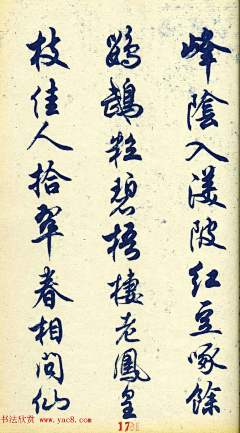 峰陰入渼陂紅豆啄餘
鸚鵡粒碧梧棲老鳳皇
枝佳人拾翠春相問仙
17
书法欣赏 www.yac8.com